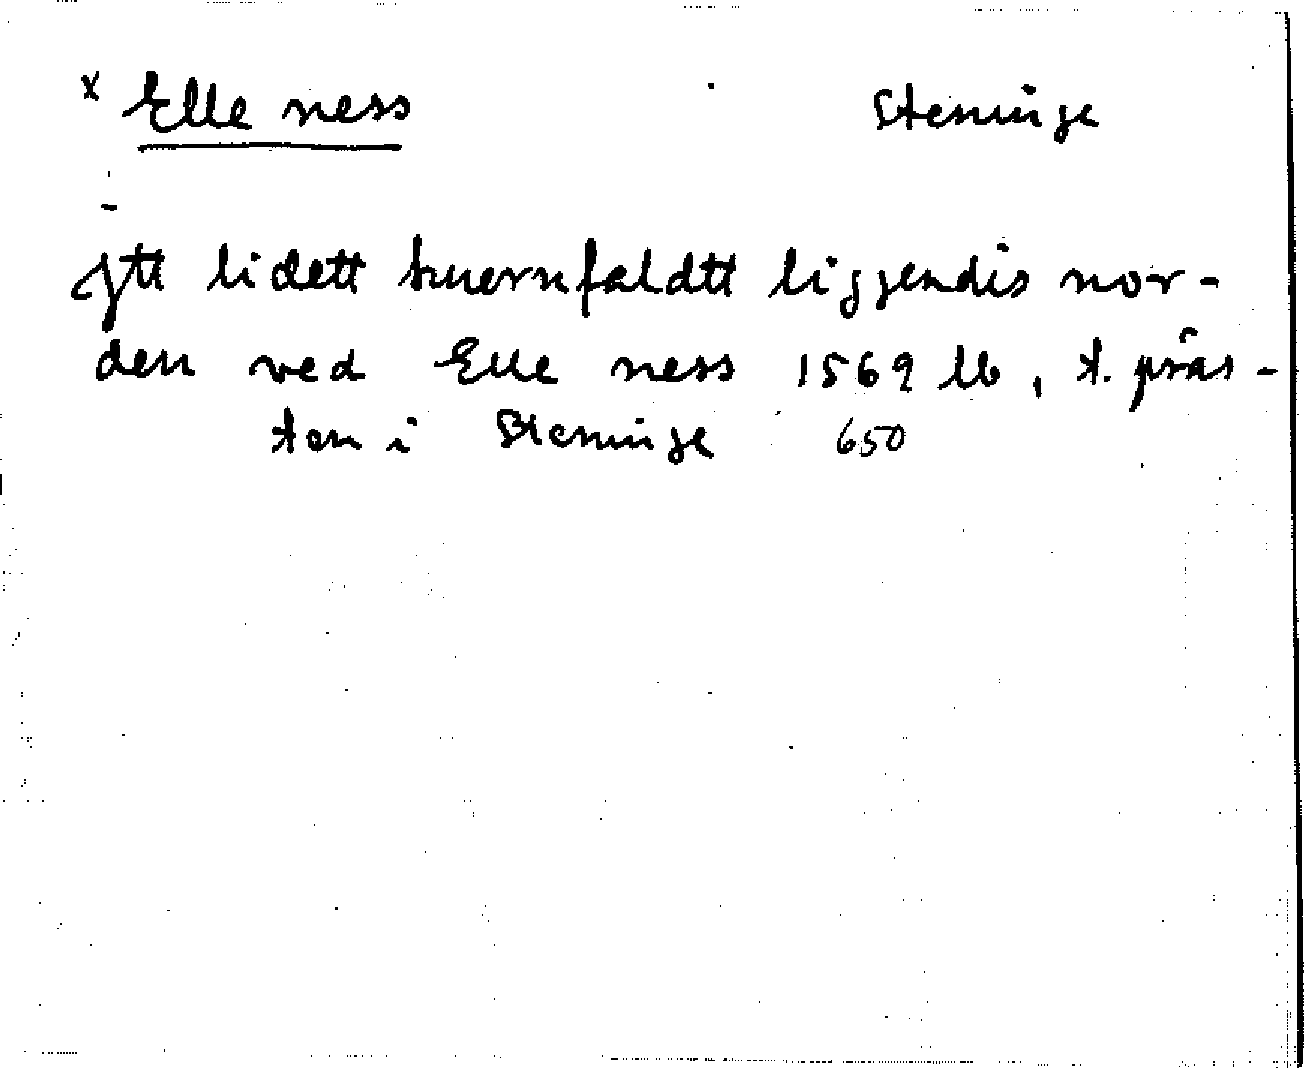 x Elle ness Steninge
Itt lidett huernfaldtt liggendis nor-
den ved Elle ness 1569 lb, t. präs-
ten i Steninge 650